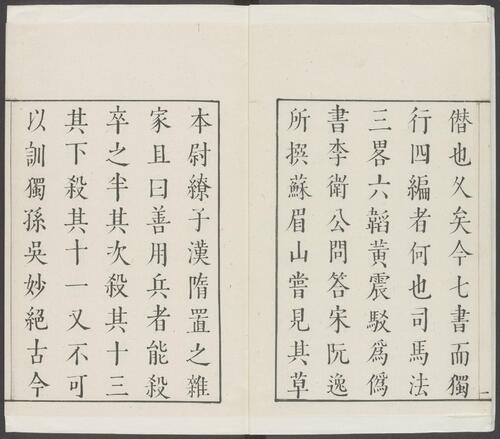 僭也久矣今七書而獨
行四編者何也司馬法
三畧六韜黃震駁爲僞
書李衛公問答宋阮逸
所撰蘇眉山嘗見其草
本尉繚子漢隋置之雜
家且曰善用兵者能殺
卒之半其次殺其十三
其下殺其十一又不可
以訓獨孫吳妙絕古今